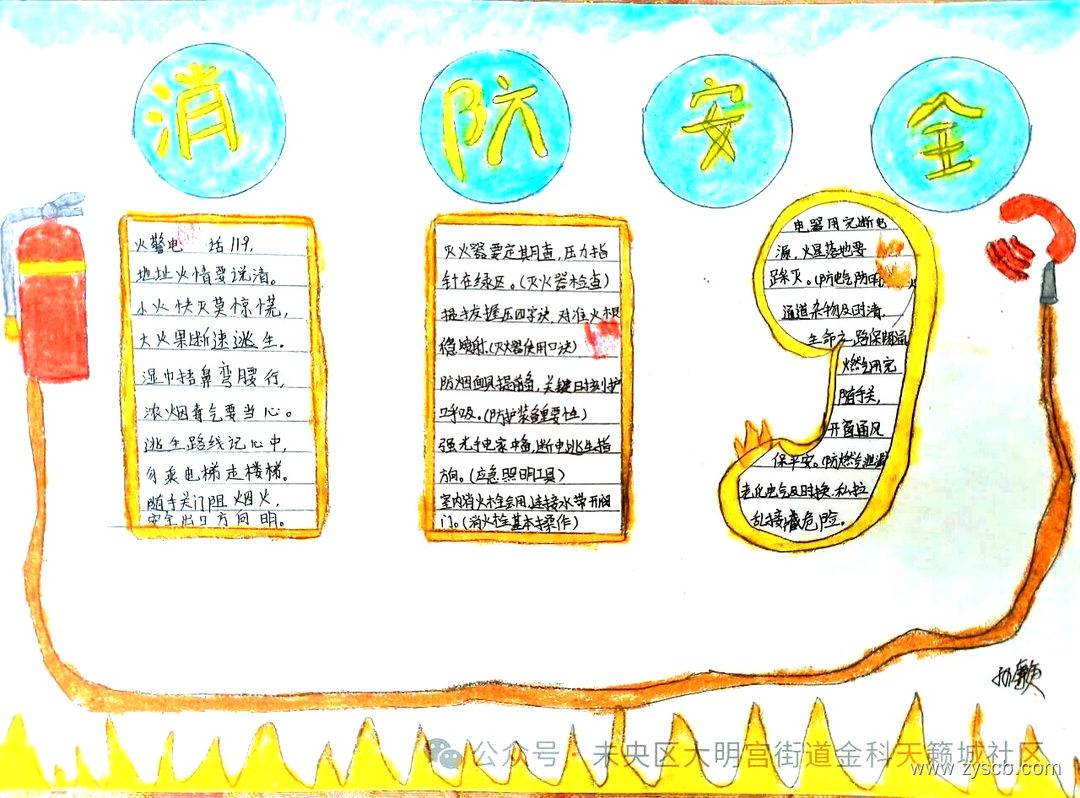 消防安全
火警电 话119,
地址火情要说清。
小火快灭莫惊慌,
大火果断速逃生。
湿巾捂鼻弯腰行,
浓烟毒气要当心。
逃生路线记心中,
勿乘电梯走楼梯。
随手关门阻烟火,
安全出口方向明。
灭火器要定期查,压力指
针在绿区。(灭火器检查)
提拔握压四字诀,对准火根
稳喷射.(灭火器使用口诀)
防烟面具提前备,关键时刻护
呼吸。(防护装备重要性)
强光手电家中备,断电逃生指
方向。(应急照明工具)
室内消火栓会用,连接水带开阀
门。(消火栓基本操作)
电器用完断电
源,火星落地要
踩灭。(防电气防
通道杂物及时清,
生命之路保畅通
燃气用完
随手关,
开窗通风
保平安。(防燃气泄漏
老化电气及时换.私拉
乱接藏危险。
公众号·未央区大明宫街道金科天籁城社区
www.zyscb.com